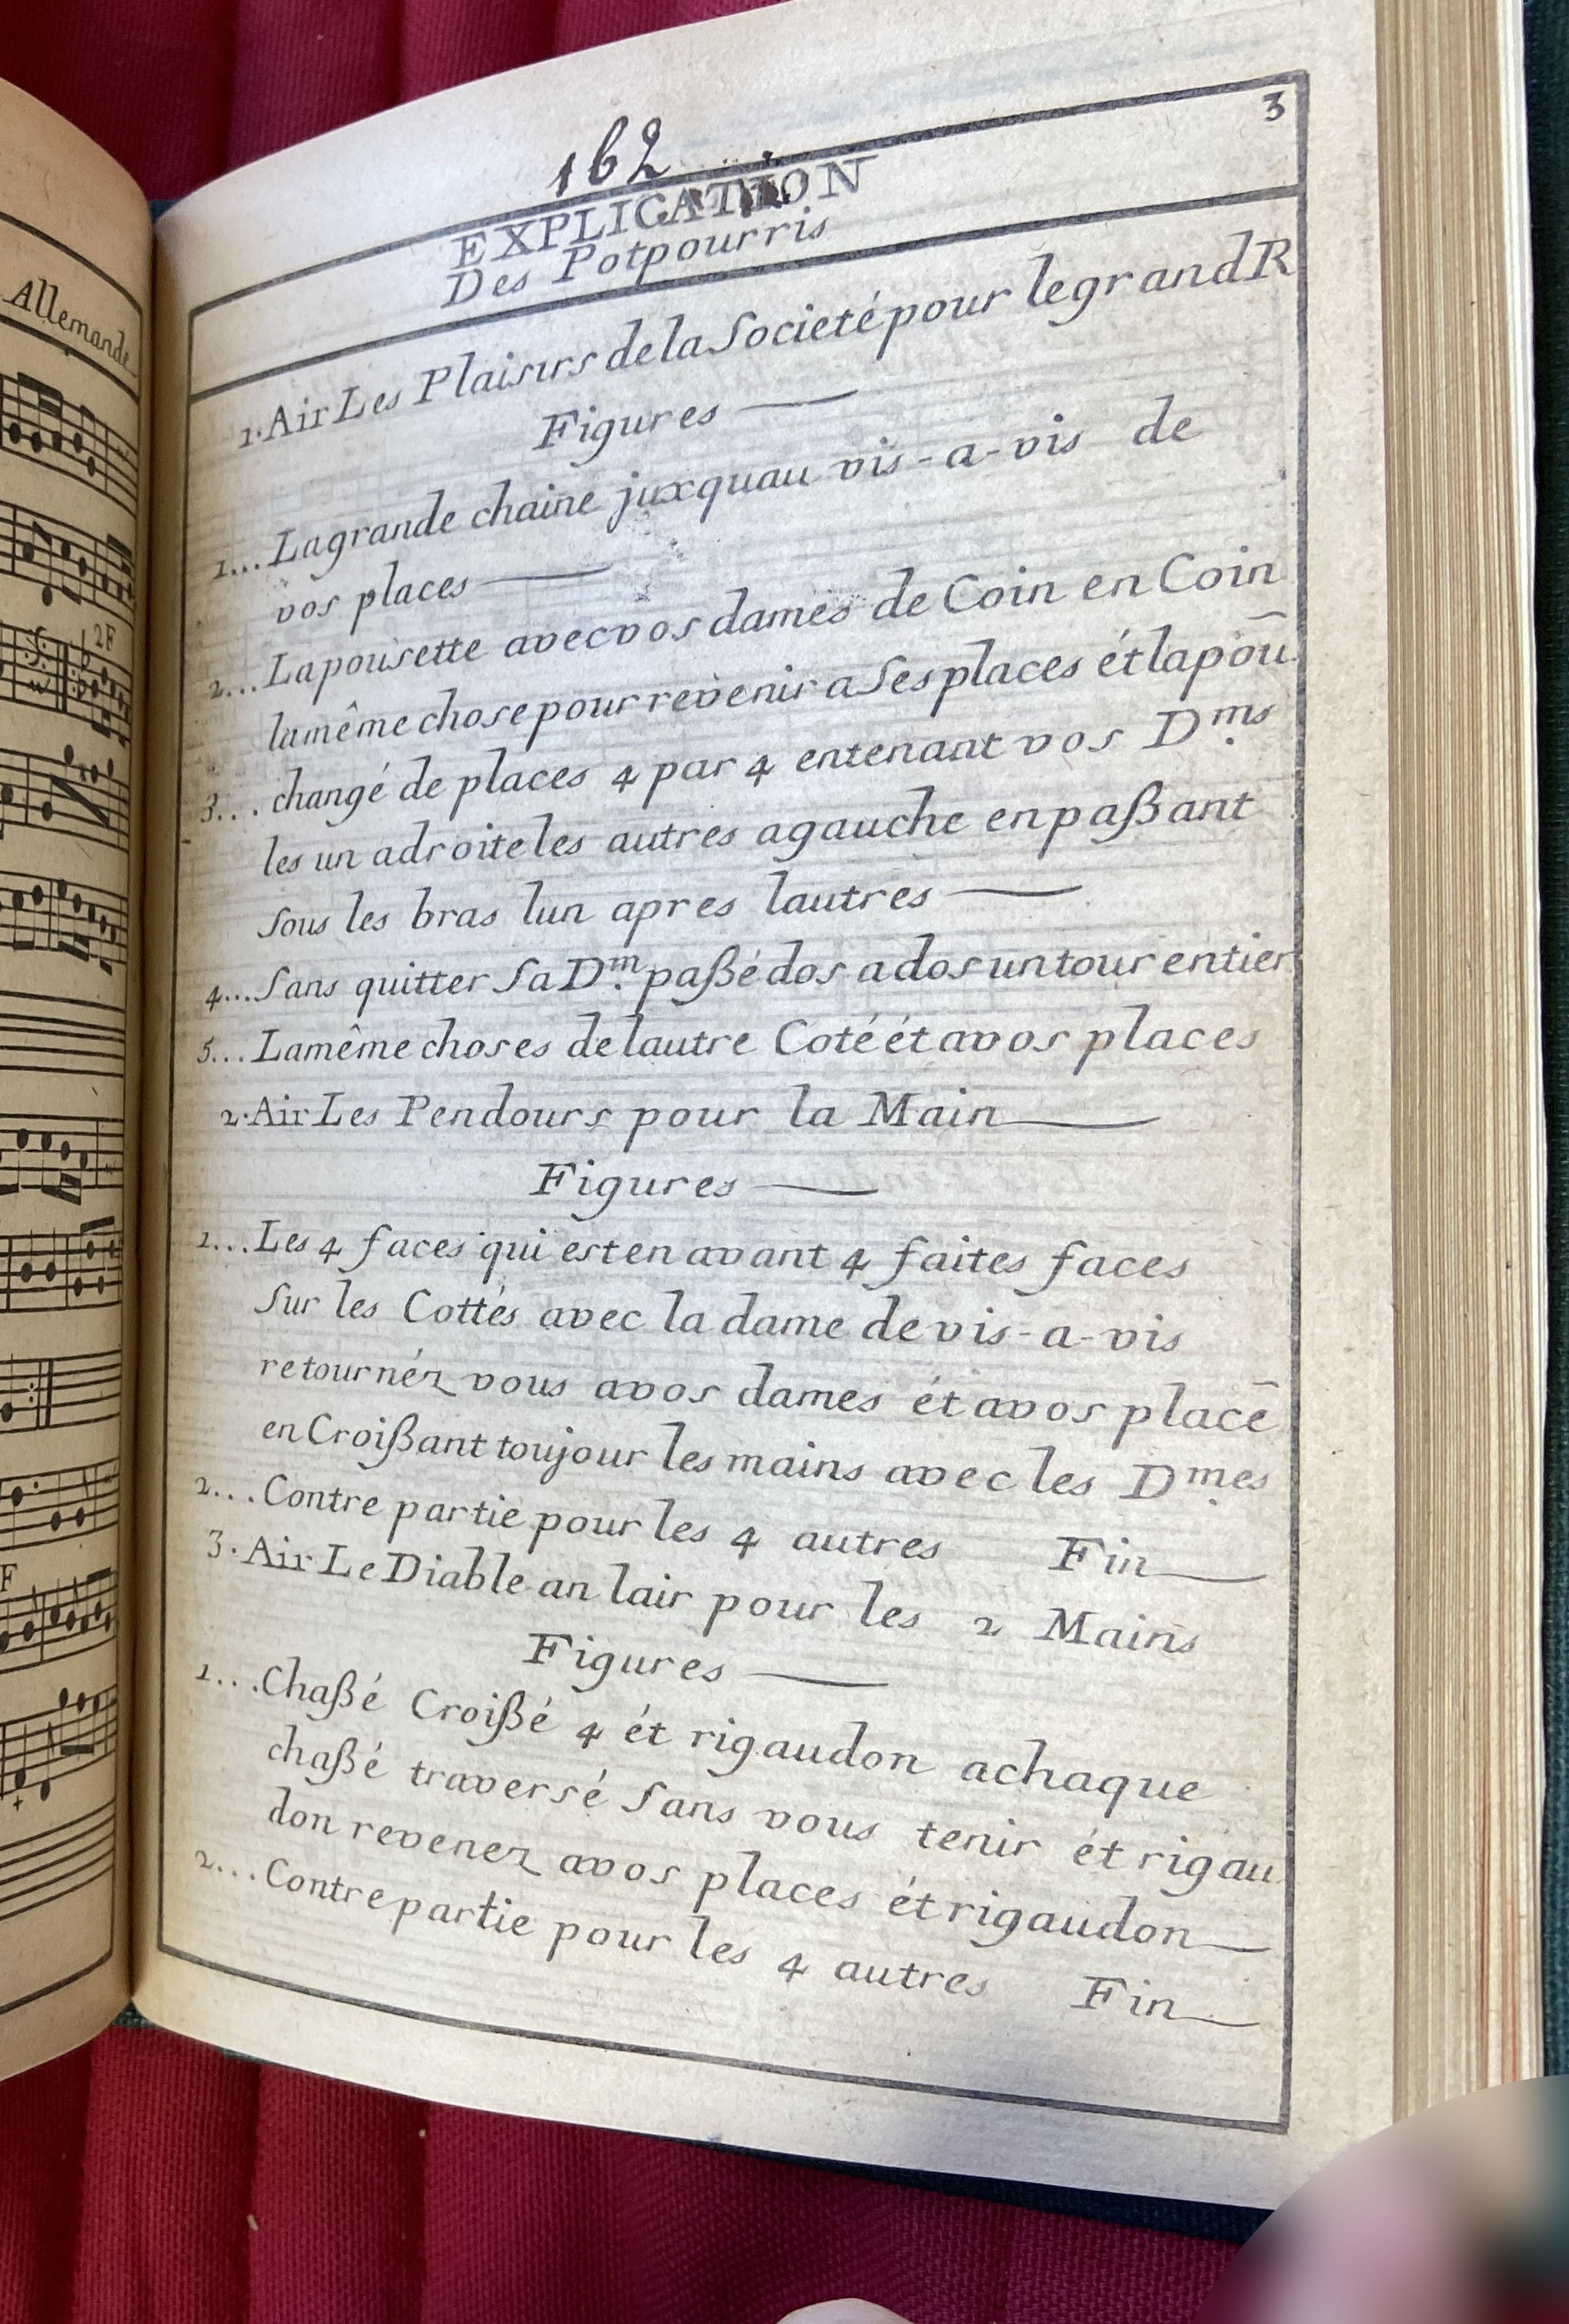 Allemande
2F
F
3
162
EXPLICATION
Des Potpourris
1. Air Les Plaisirs de la Societé pour le grand R
Figures
1... La grande chaine juxquau vis-a-vis de
vos places
2... La pousette avec vos dames de Coin en Coin
la même chose pour revenir a Ses places ét la poū
3... changé de places 4 par 4 en tenant vos D.ms
les un a droite les autres a gauche en paßant
Sous les bras lun apres lautres
4... Sans quitter Sa D.m paßé dos a dos un tour entier
5... La même choses de lautre Coté ét a vos places
2. Air Les Pendours pour la Main
Figures
1... Les 4 faces qui est en avant 4 faites faces
Sur les Cottés avec la dame de vis-a-vis
retournéz vous a vos dames ét a vos placē
en Croißant toujour les mains avec les D.mes
2... Contre partie pour les 4 autres Fin
3. Air Le Diable an lair pour les 2 Mains
Figures
1... Chaßé Croißé 4 ét rigaudon a chaque
chaßé traversé Sans vous tenir ét rigau
don revenez a vos places ét rigaudon
2... Contre partie pour les 4 autres Fin